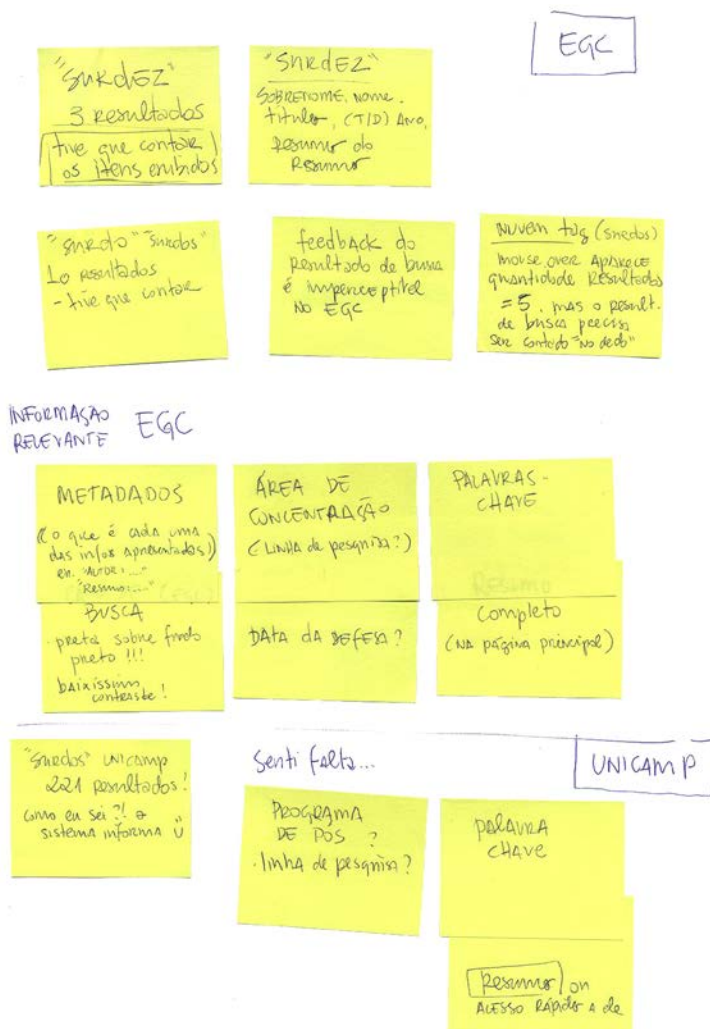 EGC
"SURDEZ"
3 Resultados
tive que contar
os itens exibidos
"SURDEZ"
SOBRENOME, Nome.
título, (T/D) Ano,
Resumo do
Resumo
"surdo" "surdos"
10 resultados
- tive que contar
feedback do
Resultado de busca
é imperceptível
NO EGC
NUVEM tag (surdos)
mouse over APARECE
quantidade Resultados
= 5, mas o result.
de busca precisa
ser contado "no dedo"
INFORMAÇÃO
RELEVANTE EGC
METADADOS
(O que é cada uma
das infos apresentadas)
ex. "AUTOR: ...."
"Resumo: ...."
BUSCA
preta sobre fundo
preto !!!
baixíssimo
contraste!
ÁREA DE
CONCENTRAÇÃO
(LINHA de pesquisa?)
DATA DA DEFESA?
PALAVRAS-
CHAVE
RESUMO
Completo
(NA página principal)
"Surdos" UNICAMP
221 resultados!
Como eu sei ?! o
sistema informa Ü
Senti falta...
UNICAMP
PROGRAMA
DE PÓS ?
. linha de pesquisa ?
PALAVRA
CHAVE
Resumo ou
ACESSO RÁPIDO A ele